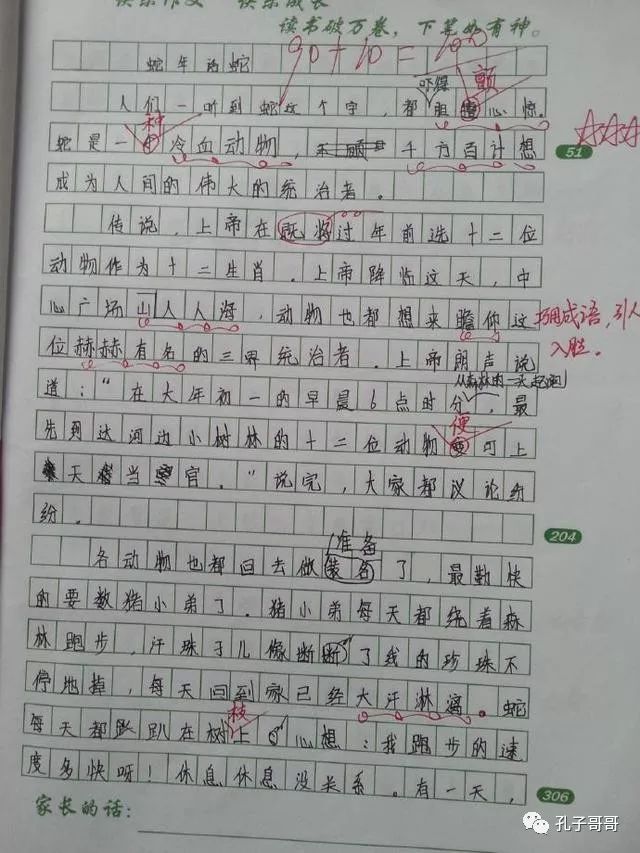 快乐作文 快乐成长
读书破万卷，下笔如有神。
蛇年的蛇 90+10=100
吓得 颤
人们一听到蛇这个字，都胆心惊。
种
蛇是一冷血动物，千方百计想
51
成为人间的伟大的统治者。
传说，上帝在既将过年前选十二位
动物作为十二生肖．上帝降临这天，中
心广场山人人海，动物也都想来瞻仰这
用成语，引人入胜。
位赫赫有名的三界统治者．上帝朗声说
从森林的一头起跑
道：“在大年初一的早晨6点时分，最
便
先到达河边小树林的十二位动物可上
天当官．”说完，大家都议论纷
纷．
204
准备
各动物也都回去做装备了，最勤快
的要数猪小弟了．猪小弟每天都绕着森
林跑步，汗珠子儿像断了线的珍珠不
停地掉，每天回到家已经大汗淋漓。蛇
枝
每天都趴在树上心想：我跑步的速
度多快呀！休息休息没关系。有一天，
306
家长的话：
孔子哥哥